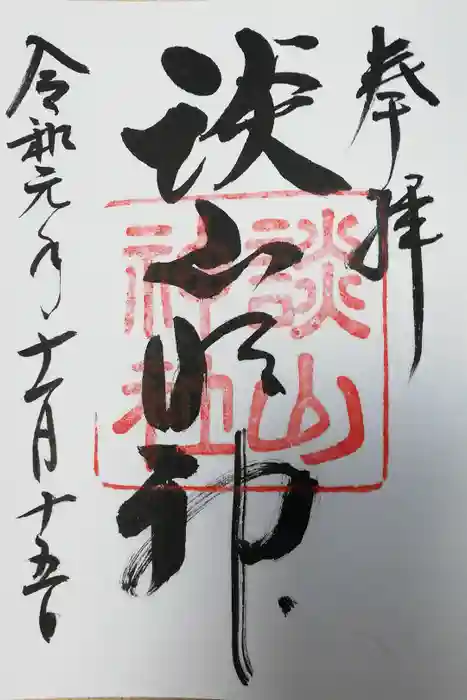 奉拝
談山明神
談山神社
令和元年十一月十五日